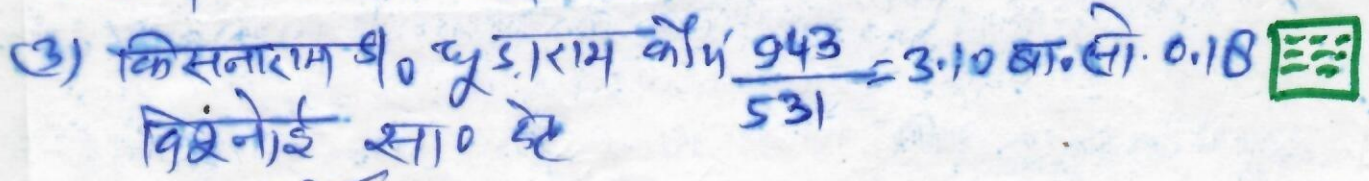 (3) किसनाराम S/o धूडाराम कौम 943/531 = 3.10 बा. सो. 0.18
विश्नोई सा० देह